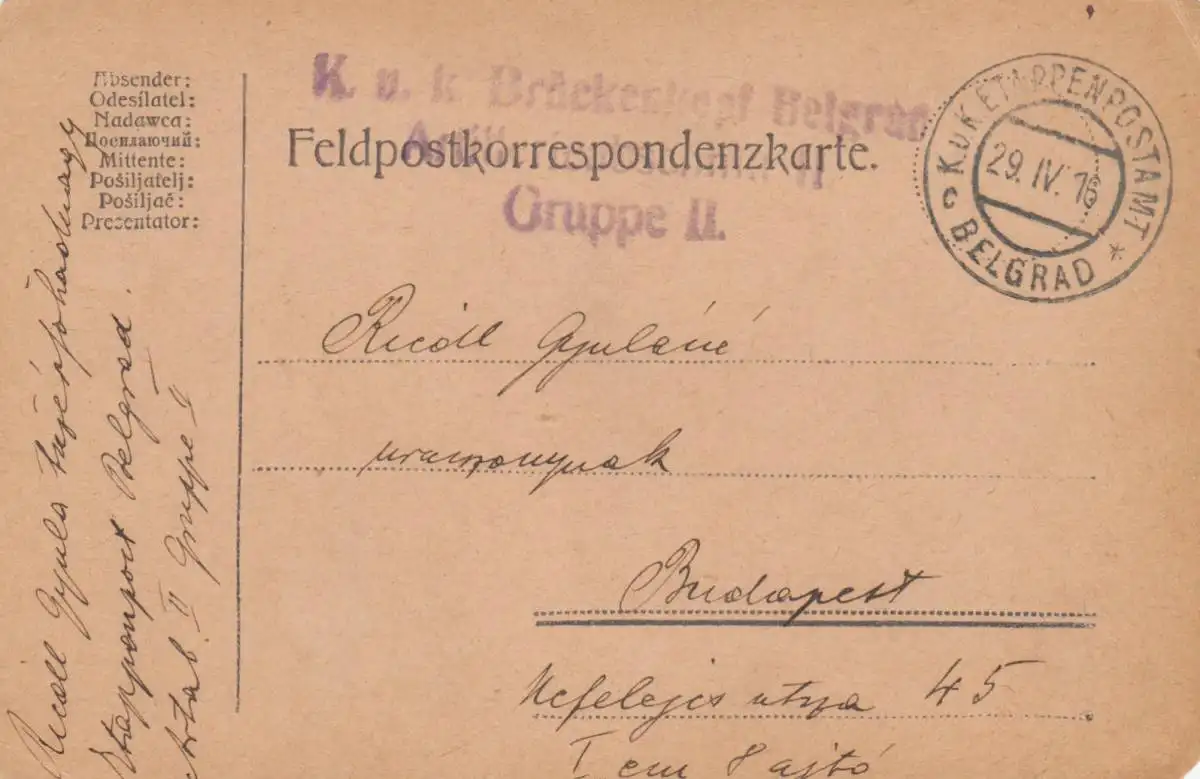 Absender:
Odesílatel:
Nadawca:
Посилаючий:
Mittente:
Pošiljatelj:
Pošiljač:
Presentator:
K. u. k. Brückenkopf Belgrad
Feldpostkorrespondenzkarte.
Gruppe II.
K.u.K. ETAPPENPOSTAMT
29. IV. 16
c BELGRAD *
Ricoll Gyuláné
uraszonynak
Budapest
Nefelejcs utza 45
I em 8 ajtó
Ricoll Gyula tüzérfőhadnagy
Etappenpost Belgrad.
II Gruppe